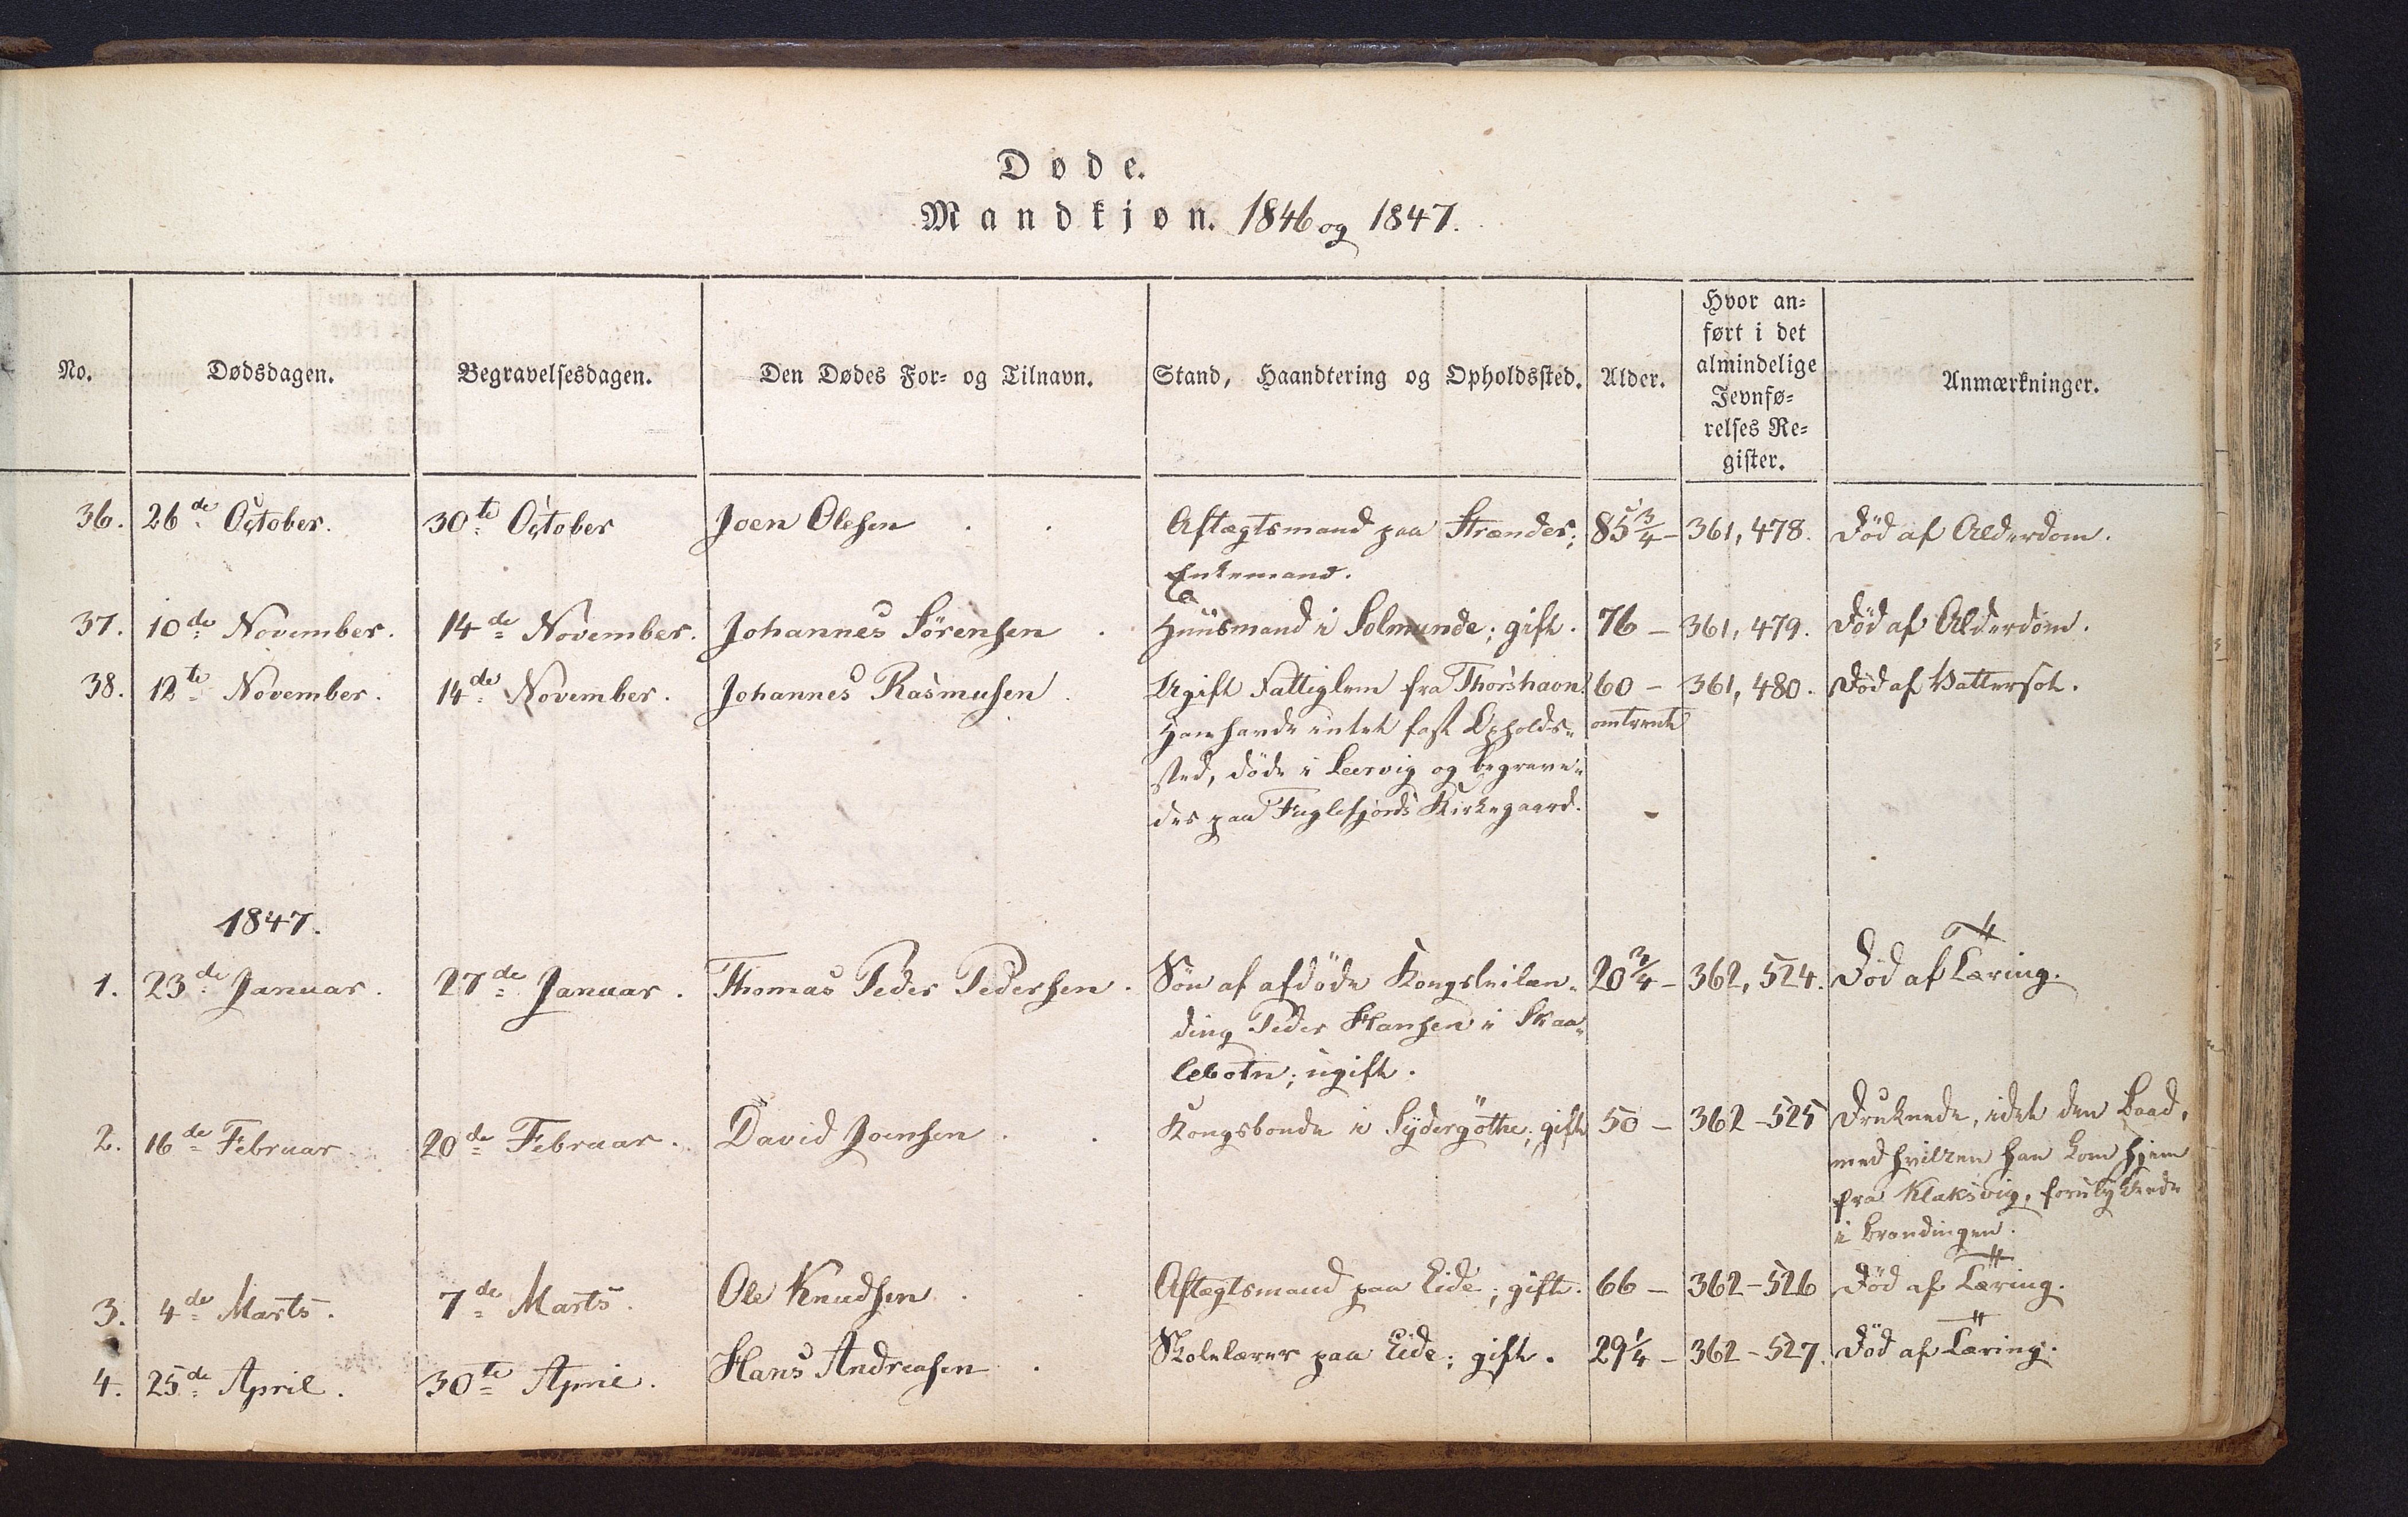 Døde.
Mandkjøn. 1846 og 1847.
No.
Dødsdagen.
Begravelsesdagen.
Den Dødes For- og Tilnavn.
Stand, Haandtering og Opholdssted.
Alder.
Hvor an-
ført i det
almindelige
Jevnfø-
relses Re-
gister.
Anmærkninger.
36. 26de October. 30te October Joen Olesen Aftægtsmand paa Strænder; 85 3/4 - 361, 478. Död af Alderdom.
Enkemand.
37. 10de November. 14de November. Johannes Sörensen Huusmand i Solmunde; gift. 76 - 361, 479. Död af Alderdom.
38. 12te November. 14de November. Johannes Rasmusen Ugift Fattiglem fra Thorshavn. 60 - 361, 480. Död af Vattersot.
Han havde intet fast Opholds- omtrent
sted, döde i Leervig og begrave-
des paa Fuglefjords Kirkegaard.
1847.
1. 23de Januar. 27de Januar. Thomas Peder Pedersen. Sön af afdöde Kongsleilæn- 20 3/4 - 362, 524. Död af Tæring.
ding Peder Hansen i Skaa-
lebotn; ugift.
2. 16de Februar 20de Februar. David Joensen Kongsbonde i Sydergöthe; gift 50 - 362-525 Druknede, idet den Baad,
med hvilken han kom hjem
fra Klaksvig, forulykkede
i Brændingen.
3. 4de Marts. 7de Marts. Ole Knudsen Aftægtsmand paa Eide; gift. 66 - 362-526 Död af Tæring.
4. 25de April. 30te April. Hans Andreasen Skolelærer paa Eide; gift. 29 1/4 - 362-527. Död af Tæring.